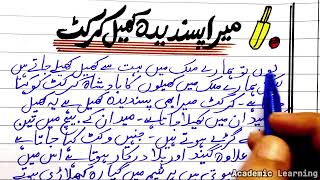 میرا پسندیدہ کھیل کرکٹ
یوں تو ہمارے ملک میں بہت سے کھیل کھیلے جاتے ہیں
ہمارے ملک میں کھیلوں کا بادشاہ کرکٹ کو کہتا
کرکٹ میرا بھی پسندیدہ کھیل ہے یہ کھیل
میدان میں کھیلا جاتا ہے۔ میدان کے بیچ میں تین
ہوتے ہیں۔ جنہیں وکٹ کہا جاتا ہے
علاوہ گیند اور بلا درکار ہوتا ہے اس میں
ٹیم میں گیارہ کھلاڑی ہوتے
Academic Learning